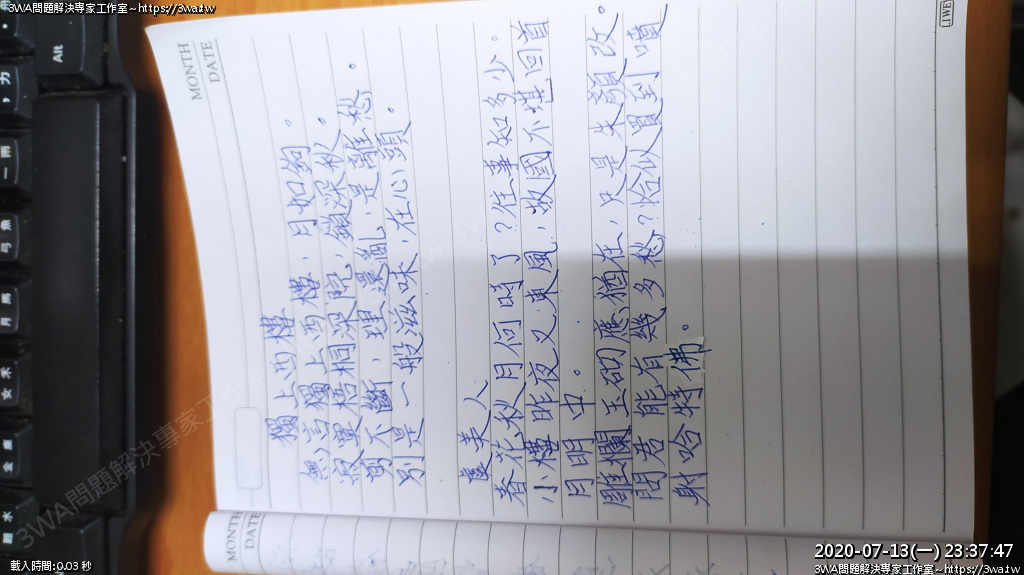 3WA問題解決專家工作室~https://3wa.tw
MONTH
DATE
獨上西樓
無言獨上西樓，月如鉤。
寂寞梧桐深院，鎖深秋。
剪不斷，理還亂，是離愁。
別是一般滋味，在心頭。
虞美人
春花秋月何時了？往事知多少。
小樓昨夜又東風，故國不堪回首
月明中。
雕欄玉砌應猶在，只是朱顏改。
問君能有幾多愁？恰似買到噴
射哈特佛。
MONTH
DATE
Alt
3WA問題解決專家工作室
2020-07-13(一) 23:37:47
載入時間:0.03 秒
3WA問題解決專家工作室~https://3wa.tw